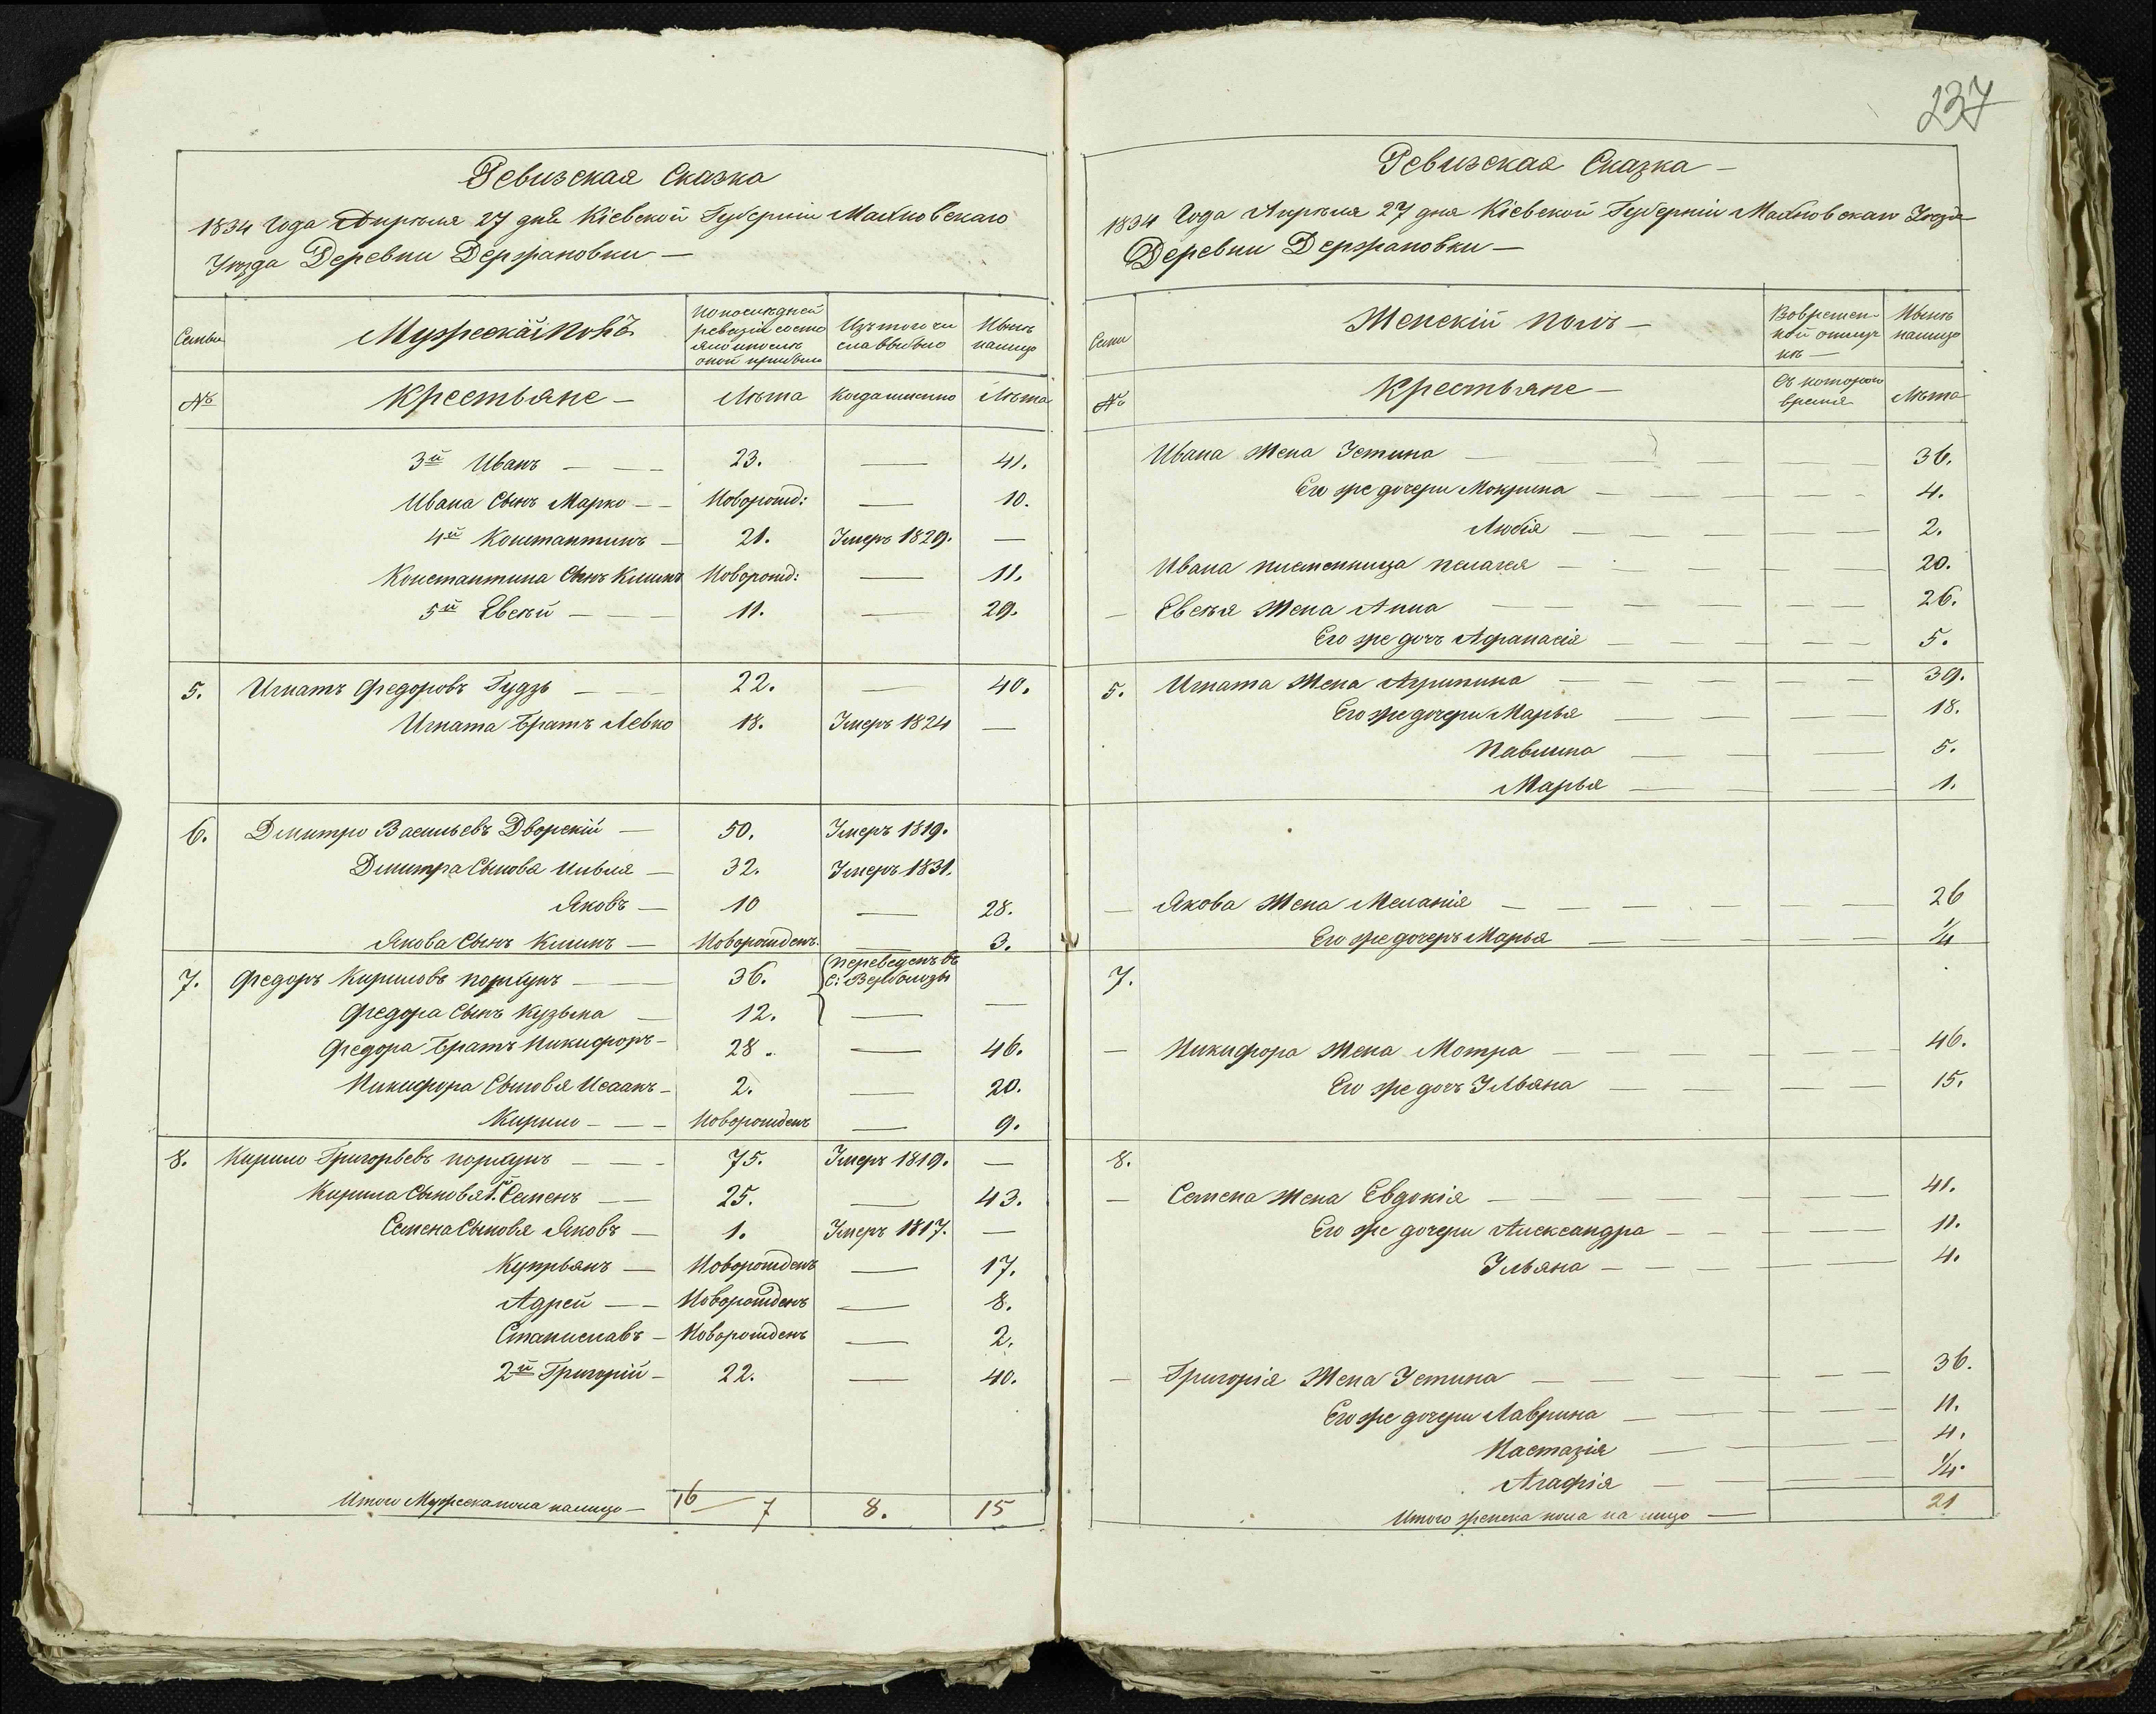 Ревизская Сказка
1834 Года Апрѣля 27 дня Кіевской Губерніи Махновскаго
Уѣзда Деревни Держановки —
Семьи
Мужескій полъ
По последней ревизіи состояло и после оной прибыло
Изъ того числа выбыло
Нынѣ налицо
№
Крестьяне —
Лѣта
Когда именно
Лѣта
3й Иванъ — 23. — 41.
Ивана Сынъ Марко — Новорожд: — 10.
4й Константинъ — 21. Умеръ 1829. —
Константина Сынъ Климъ Новорожд: — 11.
5й Евсѣй — 11. — 29.
5. Игнатъ Федоровъ Гудзь — 22. — 40.
Игната братъ Левко 18. Умеръ 1824 —
6. Дмитро Васильевъ Дворскій — 50. Умеръ 1819.
Дмитра Сыновя Илья — 32. Умеръ 1831.
Яковъ — 10 — 28.
Якова Сынъ Климъ — Новорожденъ. — 3.
7. Федоръ Кириловъ поркунъ — 36. переведенъ въ
с: Верболозы
Федора Сынъ Кузьма — 12. — —
Федора братъ Никифоръ — 28. — 46.
Никифора Сыновя Исаакъ — 2. — 20.
Кирило — Новорожденъ — 9.
8. Кирило Григорьевъ поркунъ — 75. Умеръ 1819. —
Кирила Сыновя 1й Семенъ — 25. — 43.
Семена Сыновя Яковъ — 1. Умеръ 1817. —
Куприянъ — Новорожденъ — 17.
Адрей — Новорожденъ — 8.
Станиславъ — Новорожденъ — 2.
2й Григорій — 22. — 40.
Итого Мужеска пола налицо — 16 7 8. 15
237
Ревизская Сказка —
1834 Года Апрѣля 27 дня Кіевской Губерніи Махновскаго Уезда
Деревни Держановки —
Семьи
Женскій полъ —
Во временной отлучкѣ —
Нынѣ налицо
№
Крестьяне —
Съ котораго времени
Лѣта
Ивана Жена Устина — 36.
Его же дочери Мокрина — 4.
Любія — 2.
Ивана племенница пелагея — 20.
Евсѣя Жена Анна — 26.
Его же дочъ Афанасія — 5.
5. Игната Жена Агрипина — 39.
Его же дочери Марья — 18.
Павлина — 5.
Марья — 1.
Якова Жена Меланія — 26
Его же дочеръ Марья — 1/4
7.
Никифора Жена Мотра — 46.
Его же дочъ Ульяна — 15.
8.
Семена Жена Евдокія — 41.
Его же дочери Александра — 11.
Ульяна — 4.
Григорія Жена Устина — 36.
Его же дочери Лаврина — 11.
Настазія — 4.
Агафія — 1/4.
Итого женска пола на лицо — 21